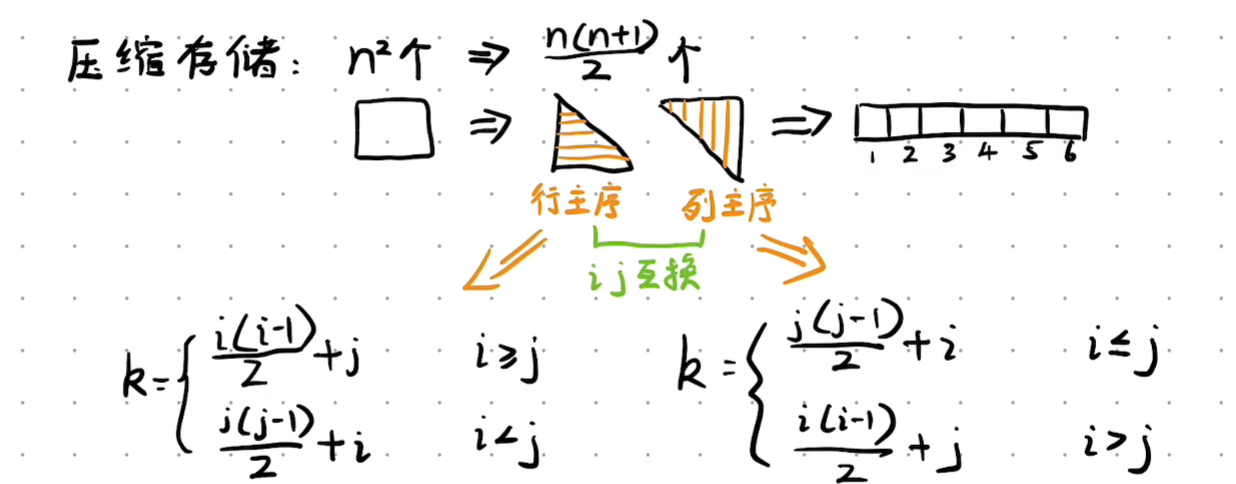 压缩存储: n²个 ⇒ n(n+1)/2 个
⇒ ⇒ 1 2 3 4 5 6
行主序 列主序
i j 互换
k = { i(i-1)/2 + j i ≥ j
j(j-1)/2 + i i < j
k = { j(j-1)/2 + i i ≤ j
i(i-1)/2 + j i > j